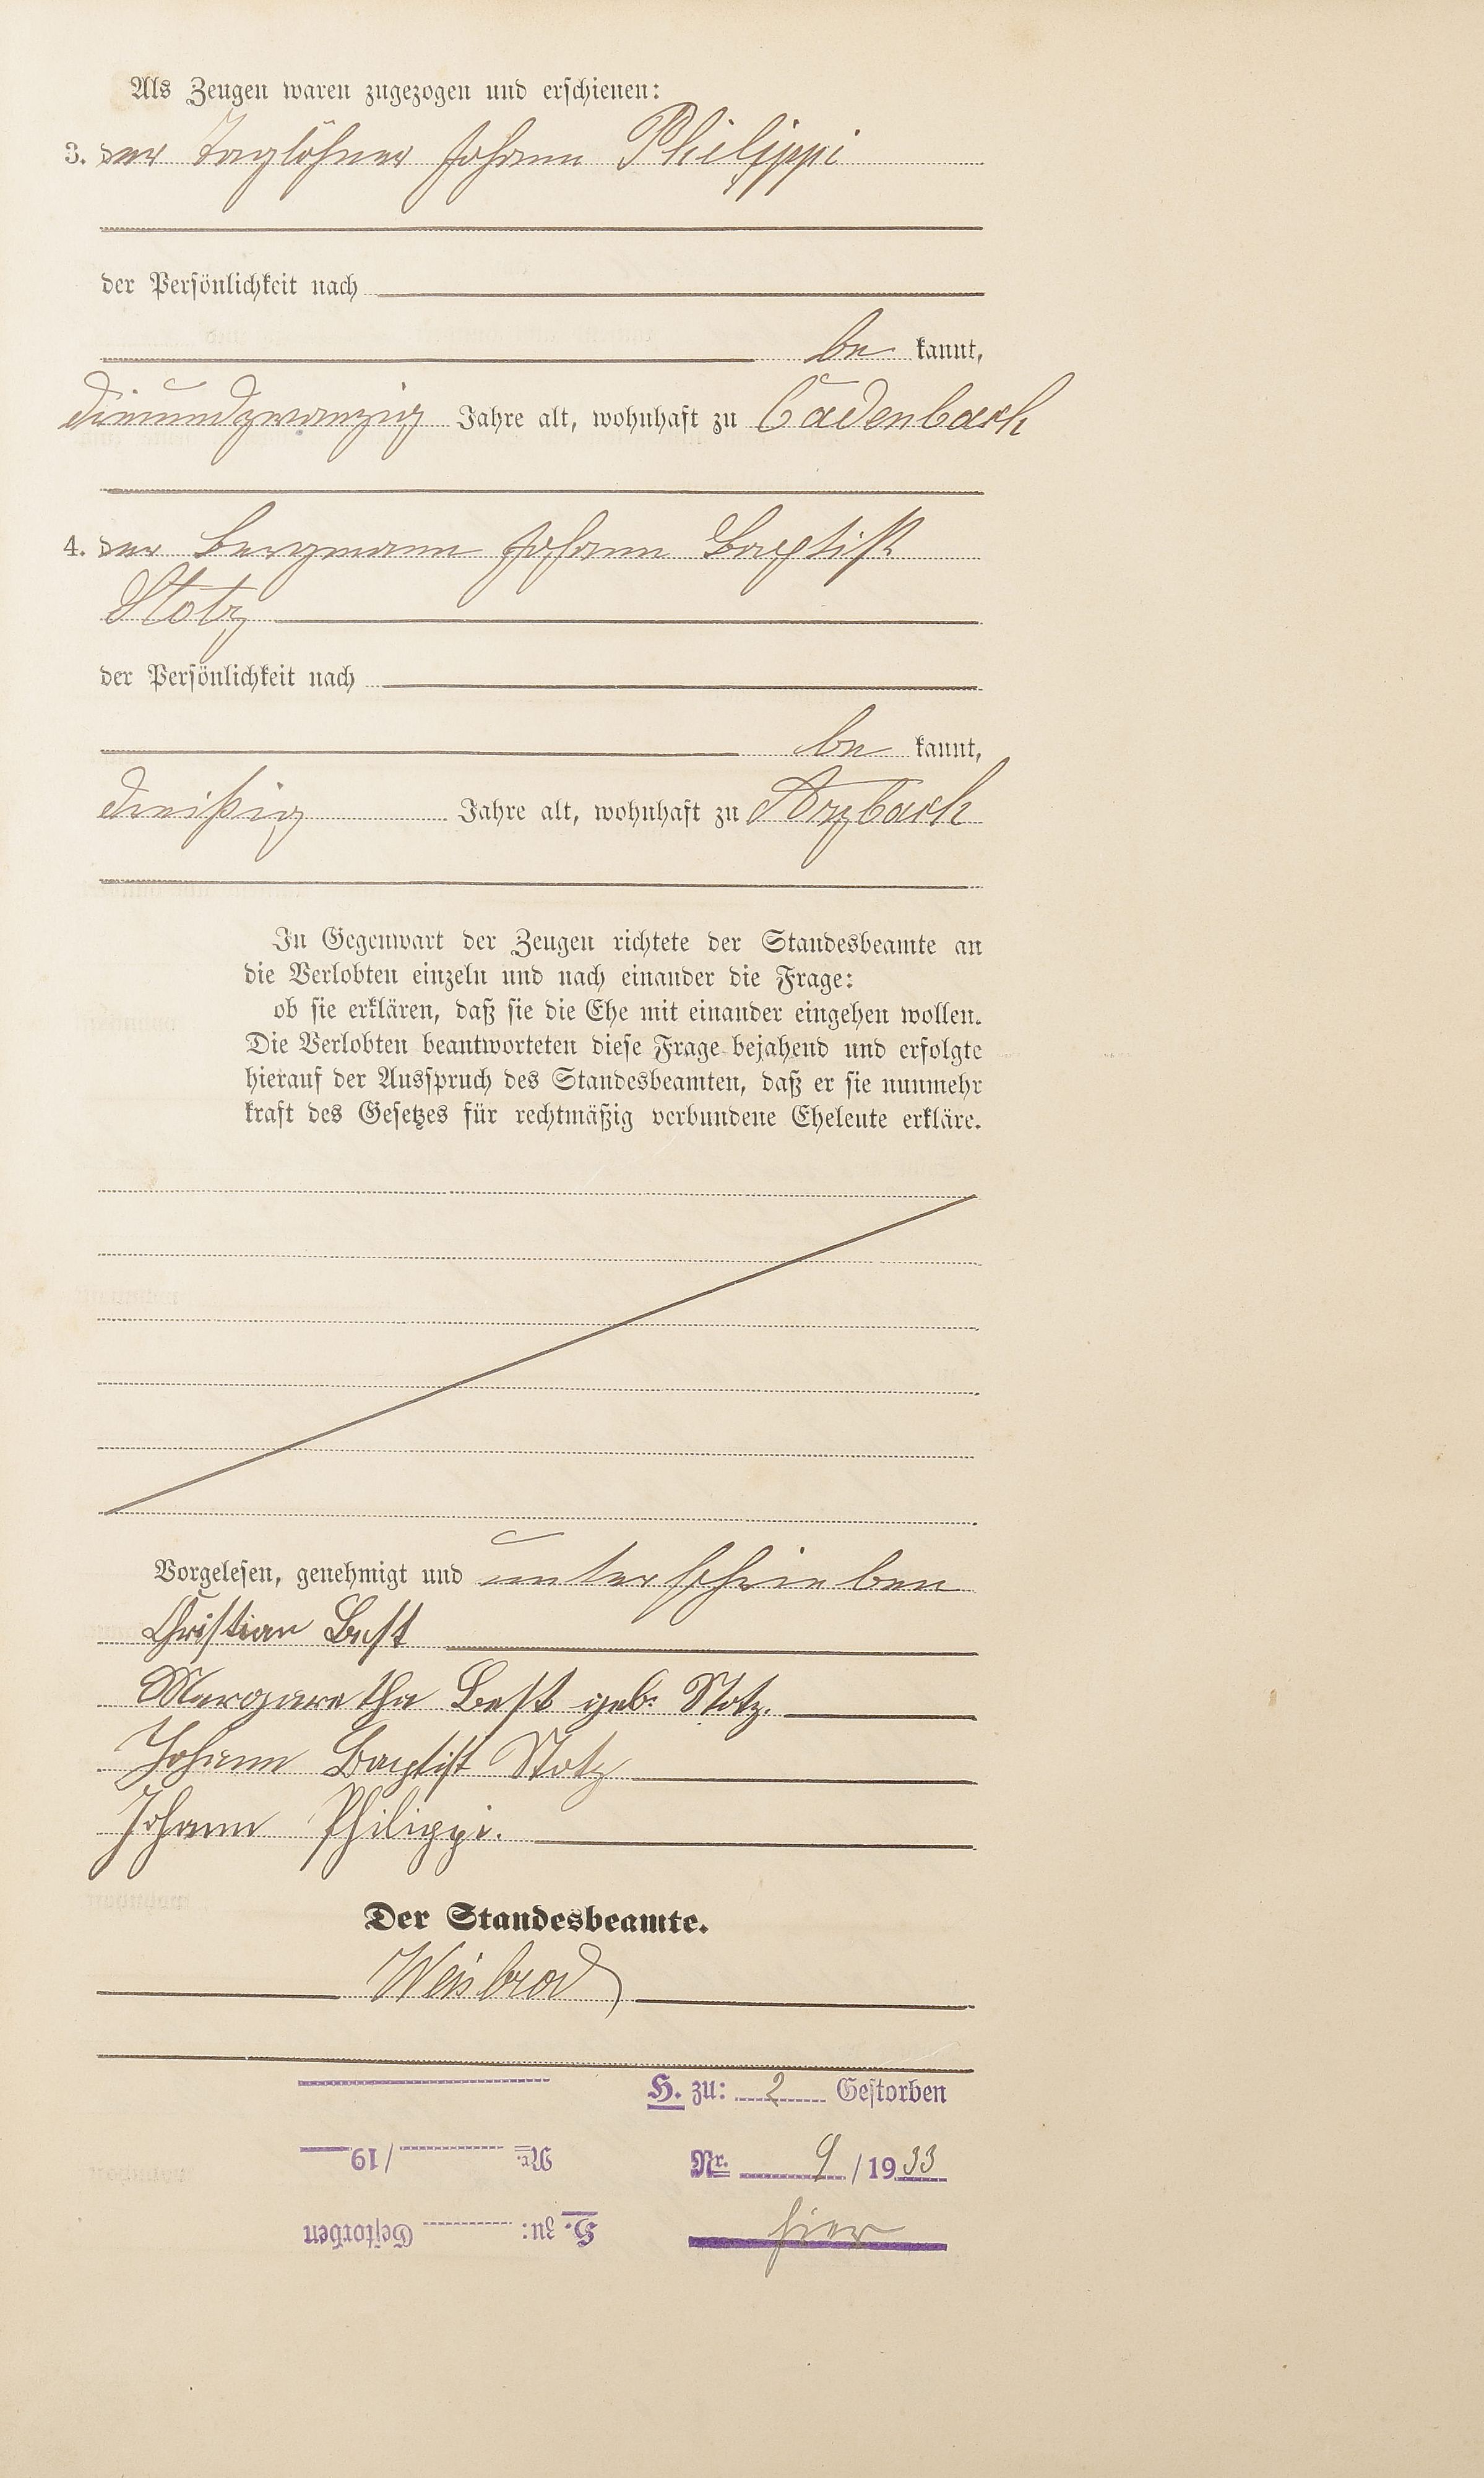 Als Zeugen waren zugezogen und erschienen:
3. der Taglöhner Johann Philippi
der Persönlichkeit nach
be kannt,
dreiundzwanzig Jahre alt, wohnhaft zu Cadenbach
4. der Bergmann Johann Baptist
Stotz
der Persönlichkeit nach
be kannt,
dreißig Jahre alt, wohnhaft zu Arzbach
In Gegenwart der Zeugen richtete der Standesbeamte an
die Verlobten einzeln und nach einander die Frage:
ob sie erklären, daß sie die Ehe mit einander eingehen wollen.
Die Verlobten beantworteten diese Frage bejahend und erfolgte
hierauf der Ausspruch des Standesbeamten, daß er sie nunmehr
kraft des Gesetzes für rechtmäßig verbundene Eheleute erkläre.
Vorgelesen, genehmigt und unterschrieben
Christian Best
Margaretha Best geb. Stotz.
Johann Baptist Stotz
Johann Philippi.
Der Standesbeamte.
Weisbrod
H. zu: 2 Gestorben
Nr. 9 / 1933
hier
H. zu: Gestorben
Nr. / 19